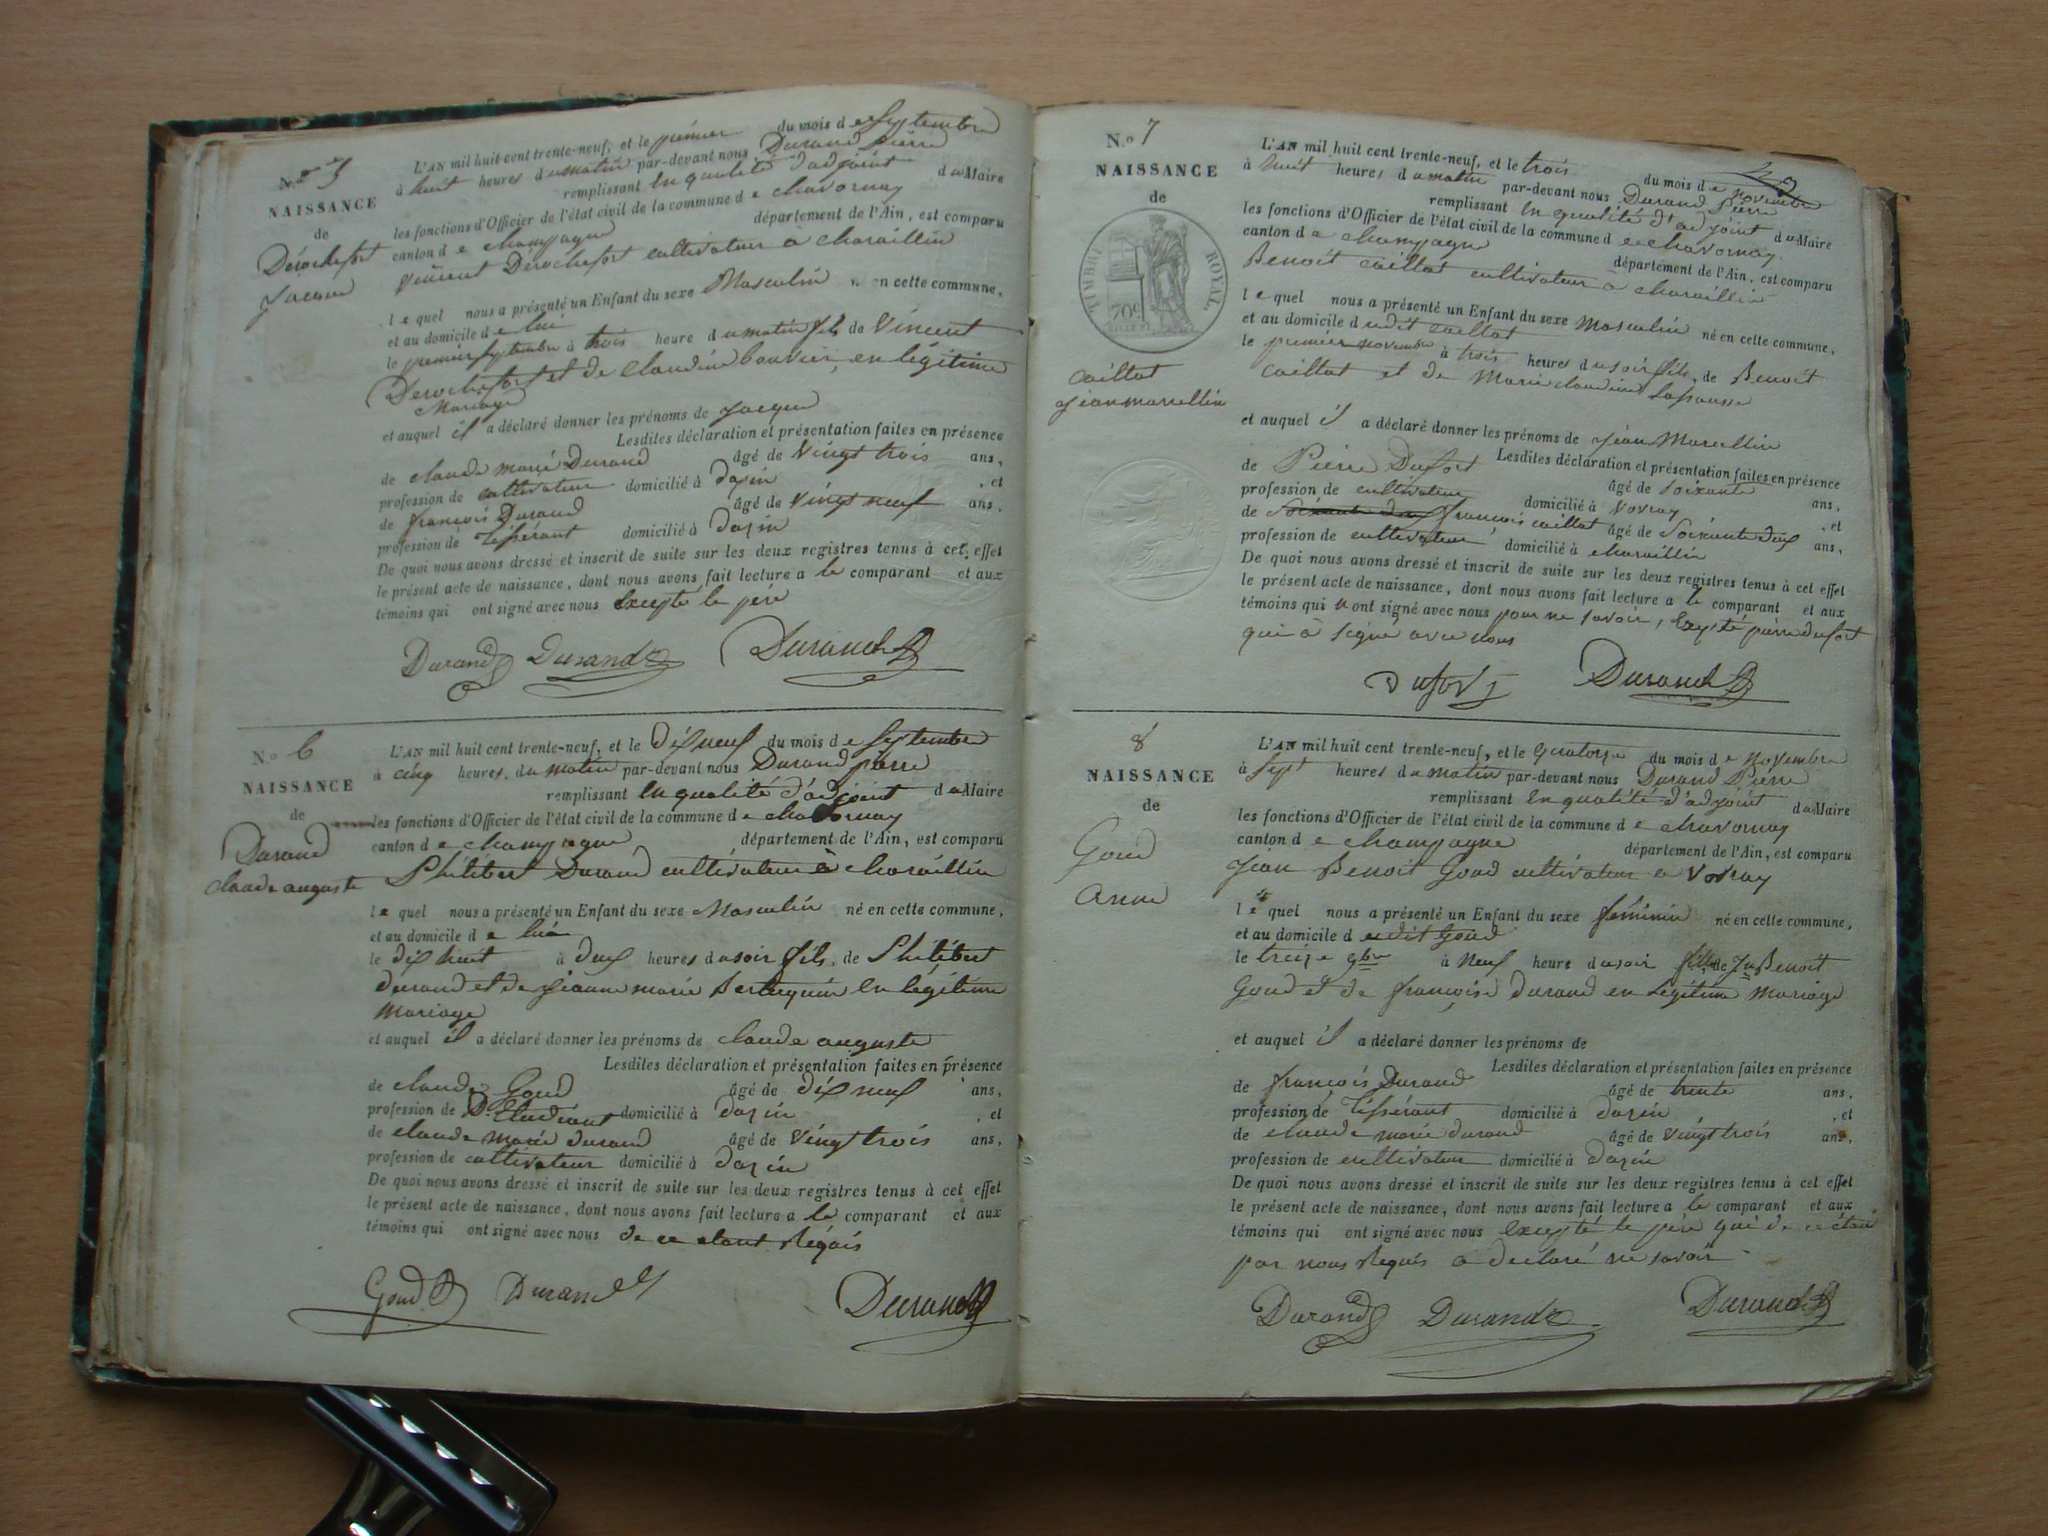 N.º 5
NAISSANCE
de
Derochefort
Jacque
L'AN mil huit cent trente-neuf, et le premier du mois de Septembre
à huit heures du matin par-devant nous Durand pierre
remplissant en qualité d'adjoint du Maire
les fonctions d'Officier de l'état civil de la commune de chavornay
canton de champagne département de l'Ain, est comparu
Vincent Derochefort cultivateur à charaillin
lequel nous a présenté un Enfant du sexe Masculin né en cette commune,
et au domicile de lui
le premier Septembre à trois heure du matin fils de Vincent
Derochefort et de Claudine bouvier, en légitime
Mariage
et auquel il a déclaré donner les prénoms de Jacque
Lesdites déclaration et présentation faites en présence
de claude marie Durand âgé de Vingt trois ans,
profession de cultivateur domicilié à dazin , et
de françois Durand âgé de vingt neuf ans,
profession de Tissérant domicilié à dazin
De quoi nous avons dressé et inscrit de suite sur les deux registres tenus à cet effet
le présent acte de naissance, dont nous avons fait lecture a le comparant et aux
témoins qui ont signé avec nous excepté le père
Durand Durand Durand
N.º 6
NAISSANCE
de
Durand
claude auguste
L'AN mil huit cent trente-neuf, et le dix neuf du mois de Septembre
à cinq heures du matin par-devant nous Durand pierre
remplissant en qualité d'adjoint du Maire
les fonctions d'Officier de l'état civil de la commune de chavornay
canton de champagne département de l'Ain, est comparu
Philibert Durand cultivateur à charaillin
lequel nous a présenté un Enfant du sexe Masculin né en cette commune,
et au domicile de lui
le dix huit à deux heures du soir fils de Philibert
durand et de jeanne marie Berthuin en légitime
mariage
et auquel il a déclaré donner les prénoms de claude auguste
Lesdites déclaration et présentation faites en présence
de claude Goud âgé de dix neuf ans,
profession de Etudiant domicilié à dazin , et
de claude marie durand âgé de Vingt trois ans,
profession de cultivateur domicilié à dazin
De quoi nous avons dressé et inscrit de suite sur les deux registres tenus à cet effet
le présent acte de naissance, dont nous avons fait lecture a le comparant et aux
témoins qui ont signé avec nous de ce étant Réquis
Goud Durand Durand
N.º 7
NAISSANCE
de
TIMBRE ROYAL
70c
caillat
jean marcellin
L'AN mil huit cent trente-neuf, et le trois du mois de novembre
à huit heures du matin par-devant nous Durand Pierre
remplissant en qualité d'adjoint du Maire
les fonctions d'Officier de l'état civil de la commune de chavornay
canton de champagne département de l'Ain, est comparu
Benoit caillat cultivateur à charaillin
lequel nous a présenté un Enfant du sexe Masculin né en cette commune,
et au domicile dudit caillat
le premier novembre à trois heures du soir fils, de Benoit
caillat et de Marie claudine Lassausse
et auquel il a déclaré donner les prénoms de jean Marcellin
Lesdites déclaration et présentation faites en présence
de Pierre Dufort âgé de soixante ans,
profession de cultivateur domicilié à Vovray , et
de françois caillat âgé de Soixante dix ans,
profession de cultivateur domicilié à charaillin
De quoi nous avons dressé et inscrit de suite sur les deux registres tenus à cet effet
le présent acte de naissance, dont nous avons fait lecture a le comparant et aux
témoins qui n ont signé avec nous pour ne savoir, Excepté pierre dufort
qui à signé avec nous
Dufort Durand
8
NAISSANCE
de
Goud
Anne
L'AN mil huit cent trente-neuf, et le quatorze du mois de novembre
à Sept heures du matin par-devant nous Durand Pierre
remplissant en qualité d'adjoint du Maire
les fonctions d'Officier de l'état civil de la commune de chavornay
canton de champagne département de l'Ain, est comparu
Jean Benoit Goud cultivateur à Vovray
lequel nous a présenté un Enfant du sexe féminin né en cette commune,
et au domicile dudit Goud
le treize 9bre à Neuf heure du soir fille de Jn Benoit
Goud et de françoise durand en Légitime Mariage
et auquel il a déclaré donner les prénoms de
Lesdites déclaration et présentation faites en présence
de françois Durand âgé de trente ans,
profession de Tissérant domicilié à dazin , et
de claude marie durand âgé de vingt trois ans,
profession de cultivateur domicilié à dazin
De quoi nous avons dressé et inscrit de suite sur les deux registres tenus à cet effet
le présent acte de naissance, dont nous avons fait lecture a le comparant et aux
témoins qui ont signé avec nous excepté le père qui de ce étant
par nous Requis a déclaré ne savoir
Durand Durand Durand